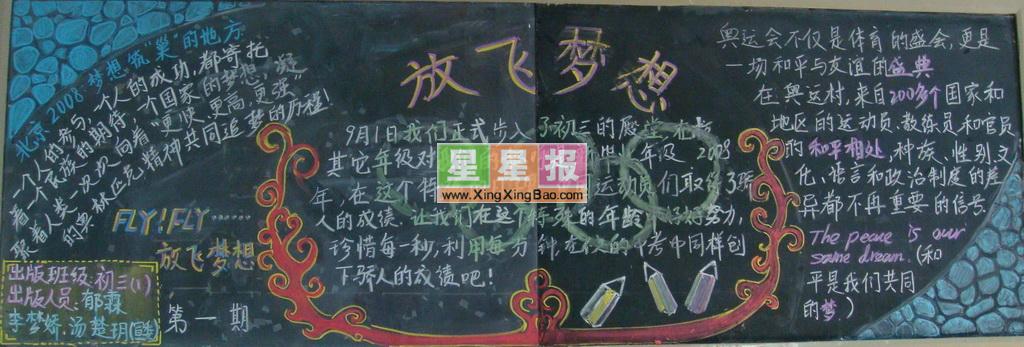 放飞梦想
北京2008·梦想筑“巢”的地方
一个人的参与，一个人的成功，都寄托
着一个民族的期待，一个国家的梦想，凝
聚着人类一次次向着“更快、更高、更强”
的奥林匹克精神共同追梦的历程！
FLY!FLY......
放飞梦想
出版班级:初三(1)
出版人员:郁霖
李梦娇、汤楚玥
第一期
9月1日我们正式步入了初三的殿
其它年级对
年级 2008
年，在这个特
运动员们取得了骄
人的成绩，让我们在这个特殊的年龄，好好努力，
珍惜每一秒，利用每一分
种在仪的中考中同样创
下骄人的成绩吧！
星星报
www.XingXingBao.com
奥运会不仅是体育的盛会，更是
一场和平与友谊的盛典
在奥运村，来自200多个国家和
地区的运动员、教练员和官员
的和平相处，种族、性别、文
化、语言和政治制度的差
异都不再重要的信号
The peace is our
same dream.(和
平是我们共同
的梦)